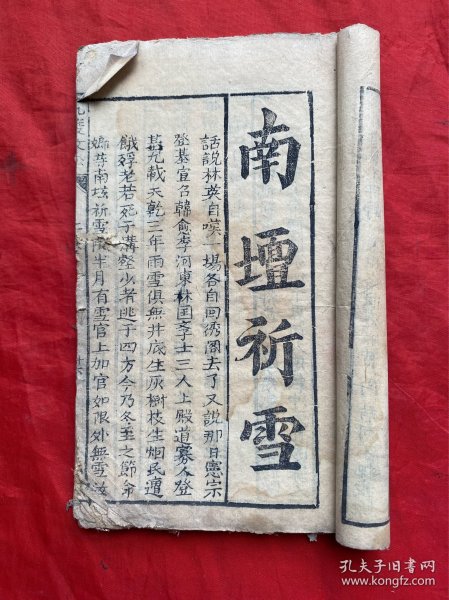 南壇祈雪
話說林英自嘆一塲各自回綉阁去了又說那日憲宗
登基宣召韓俞李河東林国亨士三人上殿道寡人登
基九載天乾三年雨雪俱無井底生灰樹枝生烟民遭
餓殍老若死于溝壑少者逃于四方今乃冬至之節命
南坛祈雪限半月有雪官上加官如限外無雪
孔夫子旧书网
www.kongfz.com